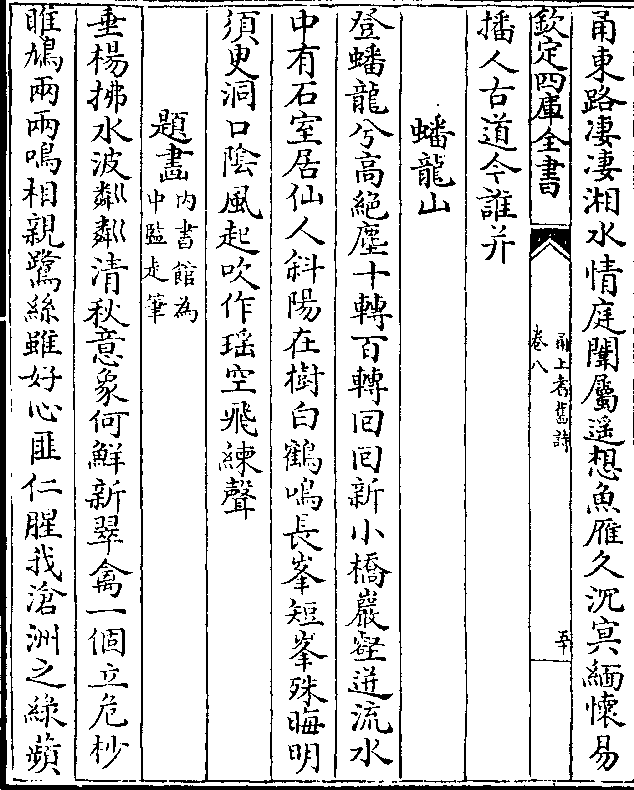 甬東路凄凄湘水情庭闈屬遥想魚雁久沉冥緬懷昜
欽定四庫全書
甬上耆舊詩
卷八
五十
播人古道今誰并
蟠龍山
登蟠龍兮高絶塵十轉百轉囘囘新小橋巖壑迸流水
中有石室居仙人斜陽在樹白鶴鳴長峯短峯殊晦明
須臾洞口陰風起吹作瑶空飛練聲
題畫内書館為中監走筆
垂楊拂水波粼粼清秋意象何鮮新翠禽一個立危杪
睢鳩兩兩鳴相親鷺絲雖好心匪仁腥我滄洲之緑蘋